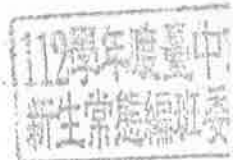 112學年度臺中
新生常態編班委